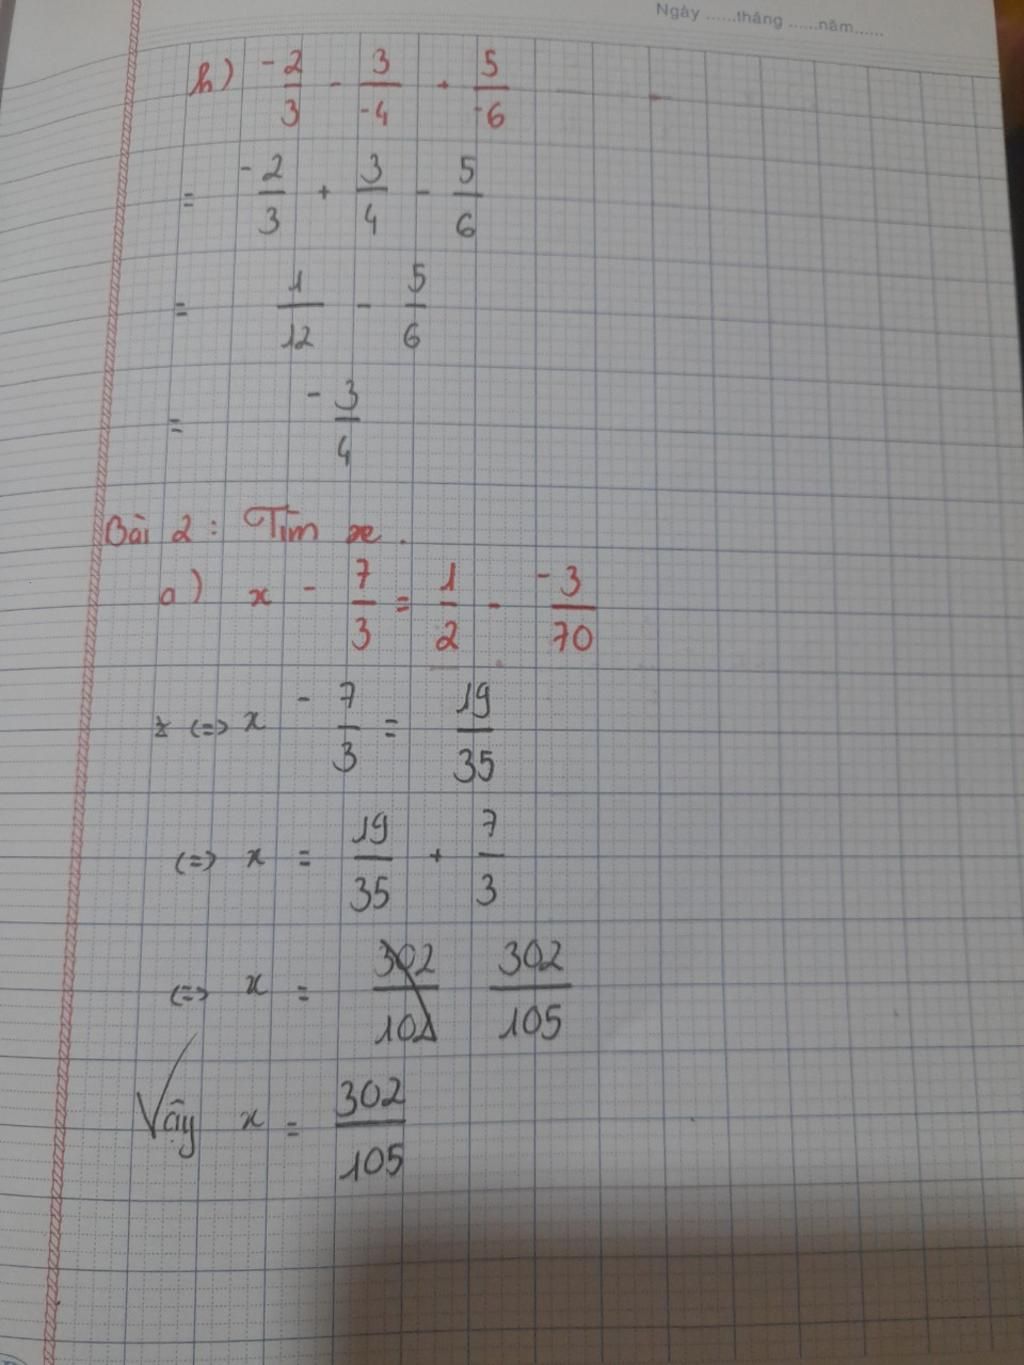 Ngày ......tháng ......năm......
h) -2/3 - 3/-4 + 5/-6
= -2/3 + 3/4 - 5/6
= 1/12 - 5/6
= -3/4
Bài 2: Tìm x.
a) x - 7/3 = 1/2 - -3/70
<=> x - 7/3 = 19/35
<=> x = 19/35 + 7/3
<=> x = 302/105
Vậy x = 302/105